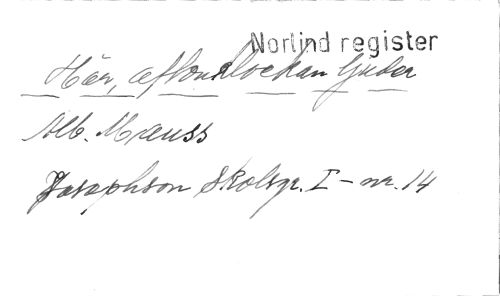 Norlind register
Hör, aftonklockan ljuder
Alb. Mauss
Josephson Skolsgr. I - nr. 14